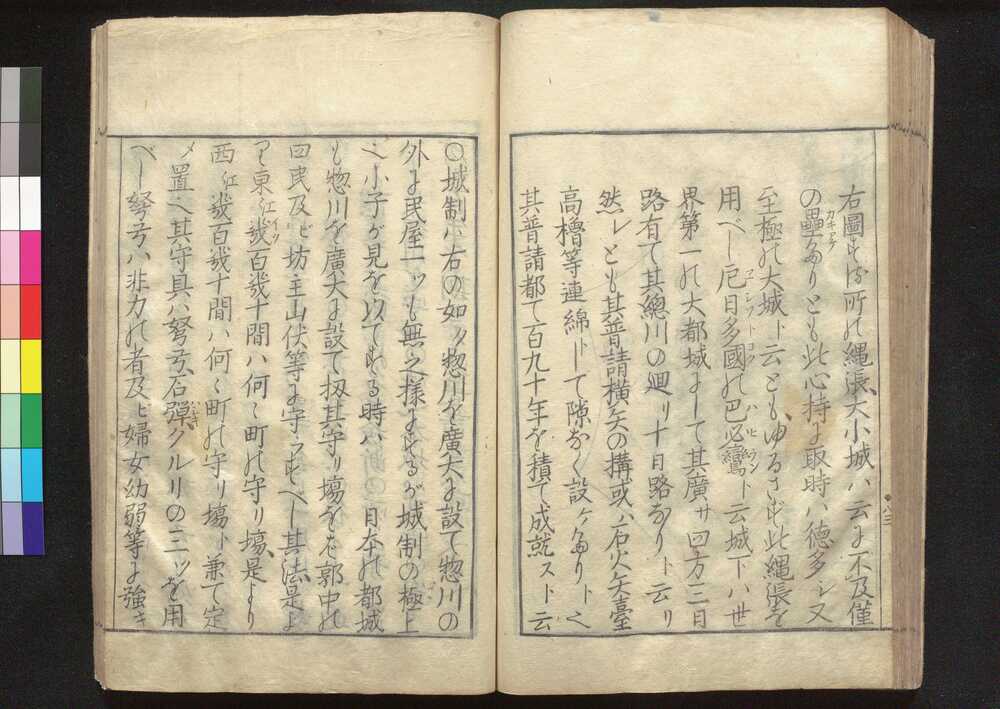 右圖する所の縄張大小城ハ云に不及僅
の壘なりとも此心持に取時ハ徳多シ又
至極の大城ト云ともゆるさず此縄張を
用べし厄日多國の巴必鸞ト云城下ハ世
界第一の大都城にして其廣サ四方三日
路有て其總川の廻リ十日路なりト云リ
然レとも其普請横矢の構或ハ石火矢臺
高櫓等連綿トして隙なく設ケたりト之
其普請都て百九十年を積て成就スト云
〇城制ハ右の如ク惣川を廣大に設て惣川の
外に民屋一ッも無之様にするが城制の極上
之小子が見を以てする時ハ日本の都城
も惣川を廣大に設て扨其守リ場をば郭中の
四民及ビ坊主山伏等に守ラすべし其法是よ
リ東江幾百幾十間ハ何〻町の守リ場是より
西江幾百幾十間ハ何〻町の守リ場ト兼て定
メ置へ其守具ハ弩弓、石弾、クルリの三ッを用
べし弩弓ハ非力の者及ヒ婦女幼弱等に強キ